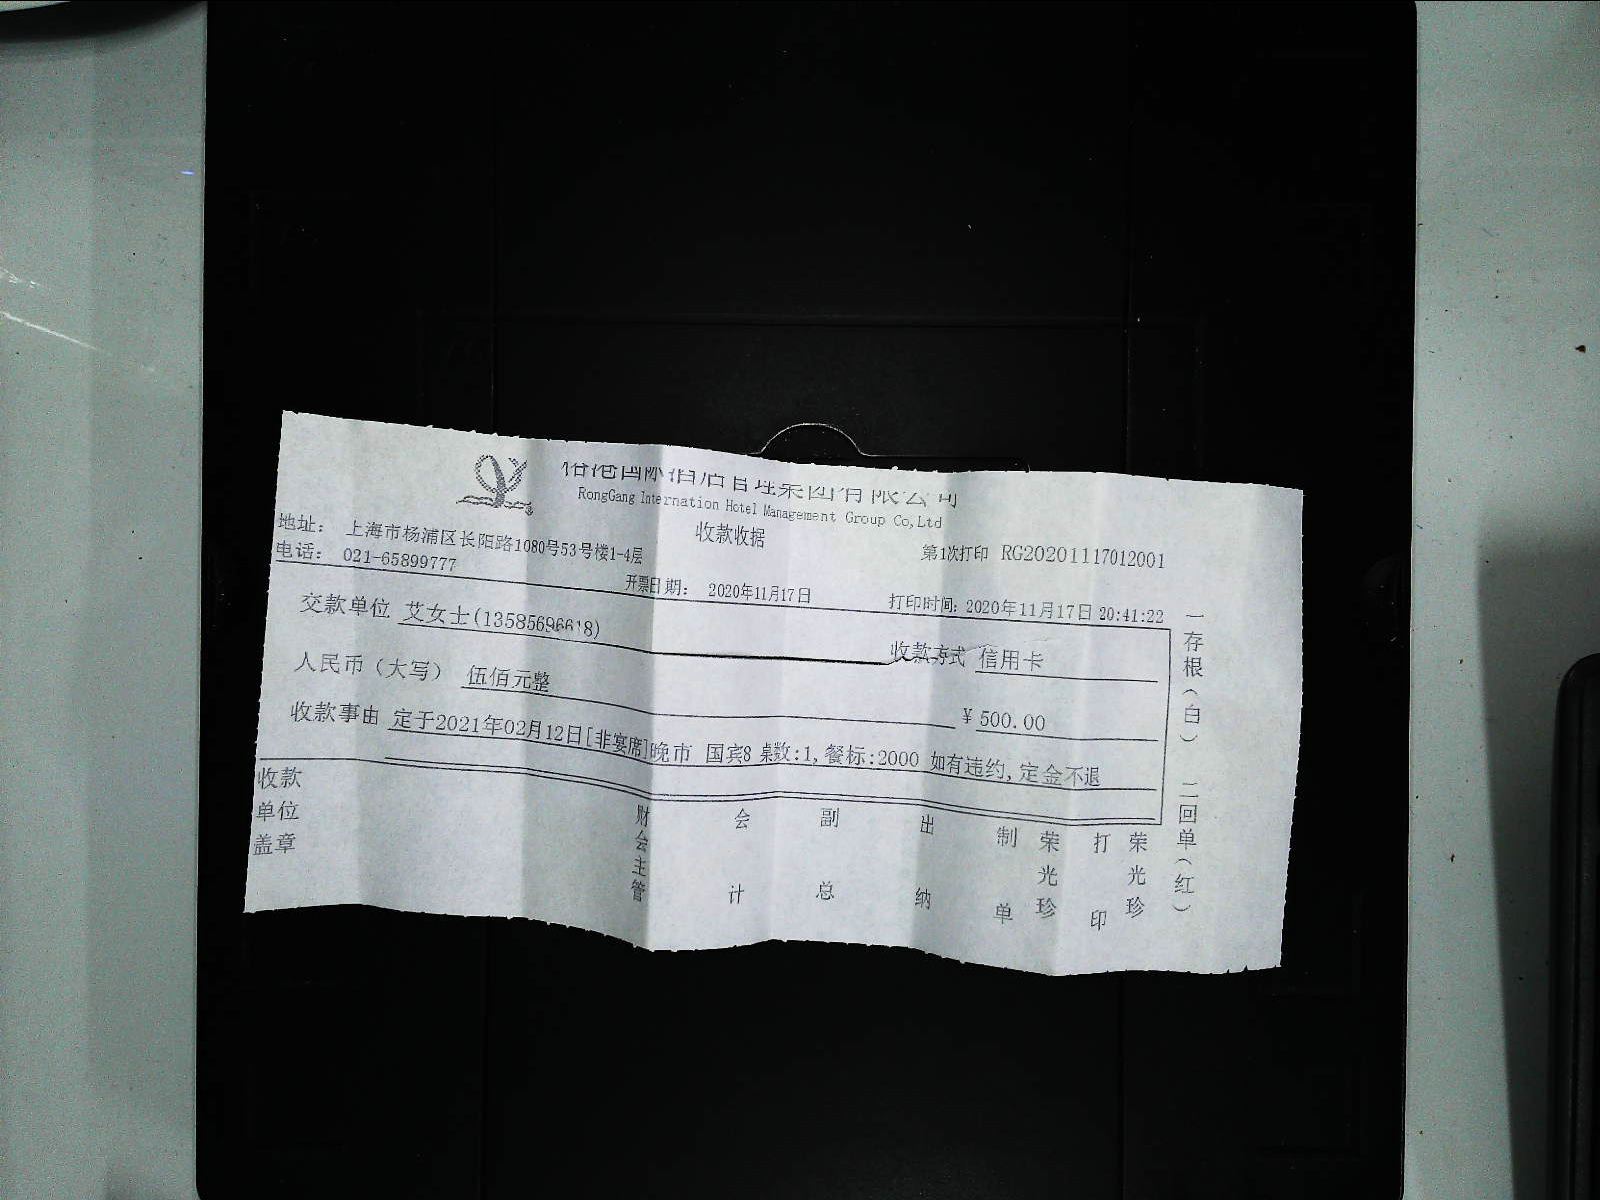 国际酒店管理集团有限公司
RongGang Internation Hotel Management Group Co,Ltd
收款收据
地址： 上海市杨浦区长阳路1080号53号楼1-4层
第1次打印 RG20201117012001
电话： 021-65899777
开票日期： 2020年11月17日
打印时间：2020年11月17日 20:41:22
交款单位 艾女士(13585696618)
收款方式 信用卡
人民币（大写） 伍佰元整
¥500.00
收款事由 定于2021年02月12日[非宴席]晚市 国宾8 桌数:1,餐标:2000 如有违约,定金不退
收款单位盖章
财会主管
会计
副总
出纳
制单
荣光珍
打印
荣光珍
一存根（白） 二回单（红）